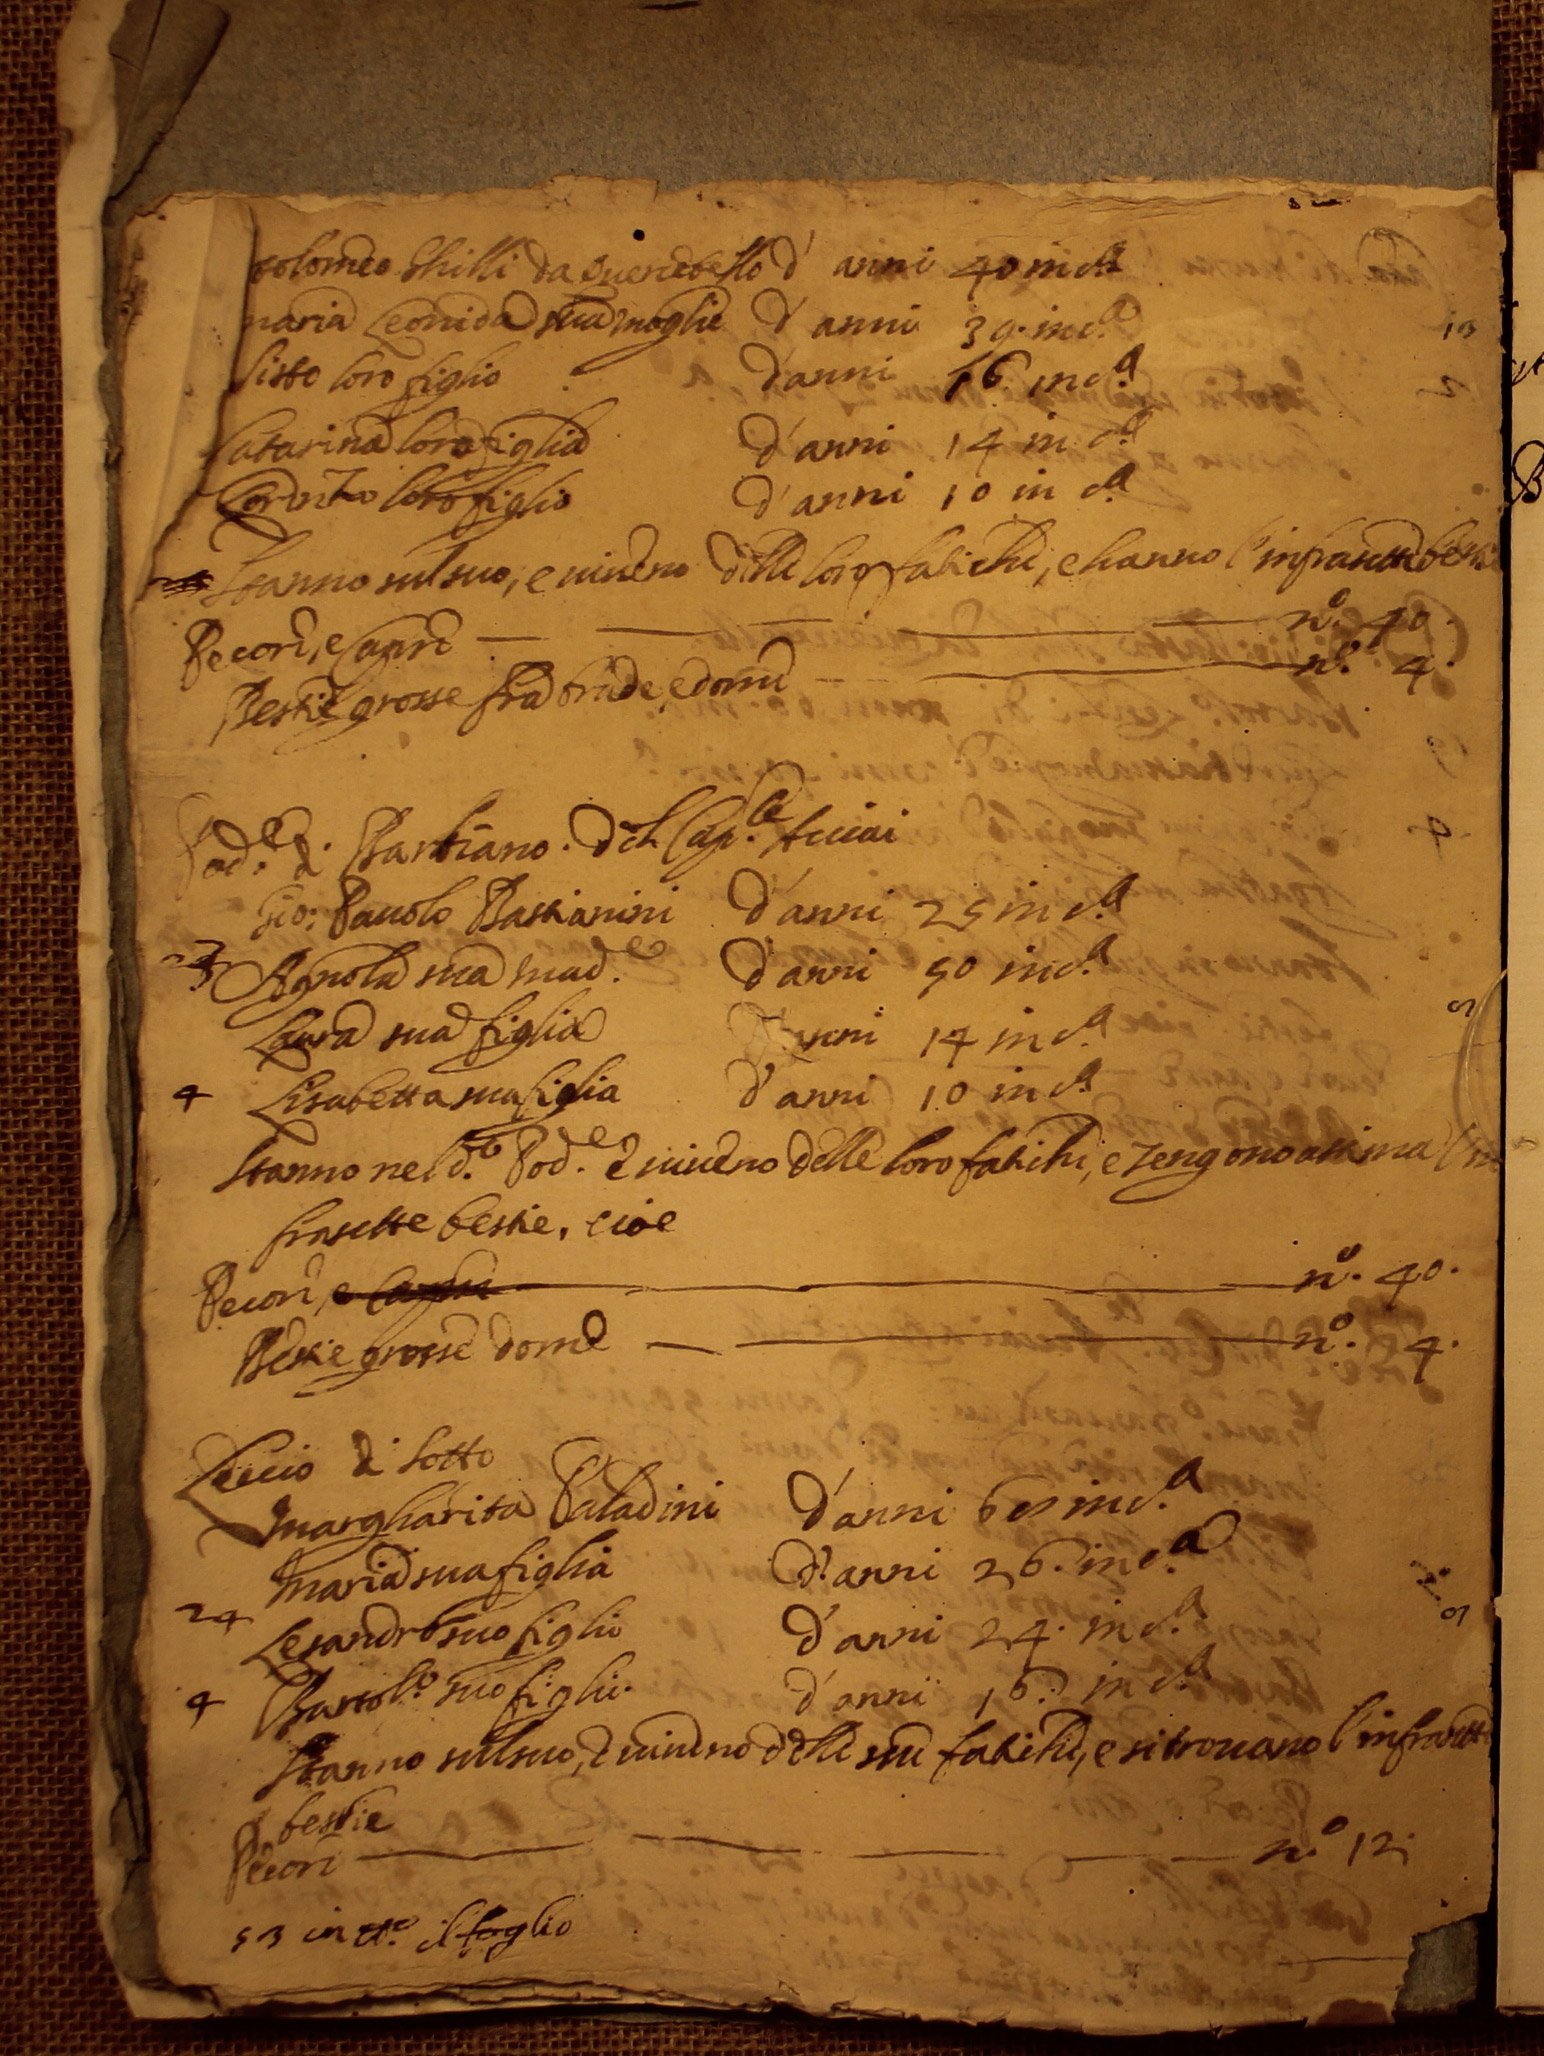 tolomeo Ghilli da Querciòbello d' anni 40 in c.a
maria Leonida sua moglie d' anni 39. in c.a
Sisto loro figlio d'anni 16 in c.a
Catarina loro figlia d'anni 14 in c.a
Lorenzo loro figlio d'anni 10 in c.a
Stanno sul suo, e vivono delle loro fatiche, e hanno l'infrascritte bestie
Pecore, e Capre n.o 40.
Bestie grosse fra brade, e dome n.o 4.
Pod.e di Barbiano. del Cap.le
Gio: Pauolo Bastianini d'anni 25 in c.a
23 Agnola sua mad.e d'anni 50 in c.a
Laura sua figlia d'anni 14 in c.a
4 Lisabetta sua figlia d'anni 10 in c.a
Stanno nel d.o Pod.e e vivono delle loro fatiche, e Tengono
frascritte bestie, cioe
Pecore, e Capre n.o 40.
Bestie grosse dome n.o 4.
Leccio di sotto
Margharita Paladini d'anni in c.a
Maria sua figlia d'anni 26. in c.a
24 Lesandro suo figlio d'anni 24. in c.a
4 Bartol.o suo figlio. d'anni 16. in c.a
Stanno sul suo, e vivono delle sue fatiche, e si trovano l'infrascritte
bestie
Pecore n.o 12.
53 in tt.o il foglio